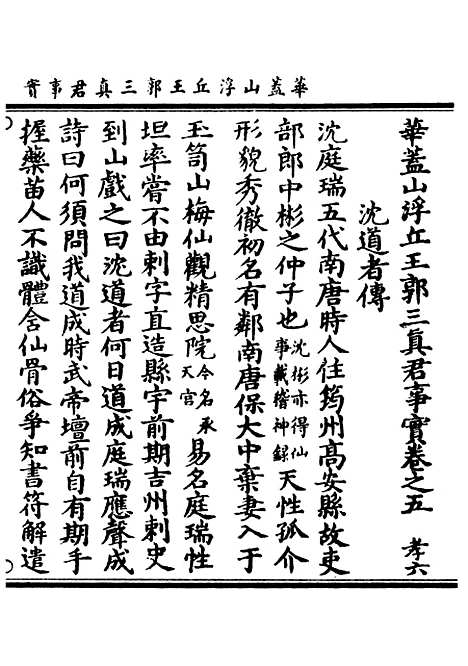 華蓋山浮丘王郭三真君事實
華蓋山浮丘王郭三真君事實卷之五 孝六
沈道者傳
沈庭瑞五代南唐時人往筠州高安縣故吏
部郎中彬之仲子也沈彬亦得仙事載稽神録天性孤介
形貌秀徹初名有鄰南唐保大中棄妻入于
玉笥山梅仙觀精思院今名承天宫易名庭瑞性
坦率嘗不由刺字直造縣宇前期吉州刺史
到山戲之曰沈道者何日道成庭瑞應聲成
詩曰何須問我道成時武帝壇前自有期手
握藥苗人不識體含仙骨俗爭知書符解遣